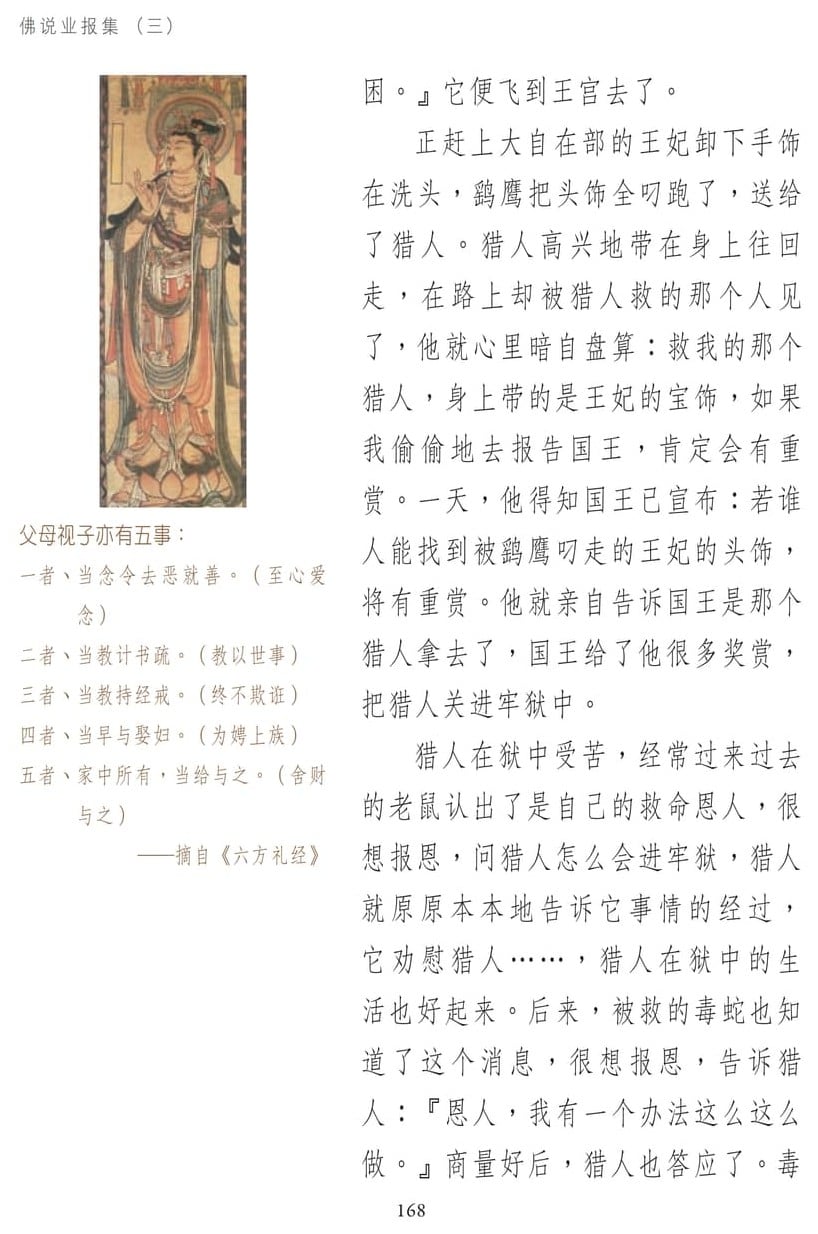 佛说业报集（三）
父母视子亦有五事：
一者、当念令去恶就善。（至心爱
念）
二者、当教计书疏。（教以世事）
三者、当教持经戒。（终不欺诳）
四者、当早与娶妇。（为娉上族）
五者、家中所有，当给与之。（舍财
与之）
——摘自《六方礼经》
困。』它便飞到王宫去了。
正赶上大自在部的王妃卸下手饰
在洗头，鹞鹰把头饰全叼跑了，送给
了猎人。猎人高兴地带在身上往回
走，在路上却被猎人救的那个人见
了，他就心里暗自盘算：救我的那个
猎人，身上带的是王妃的宝饰，如果
我偷偷地去报告国王，肯定会有重
赏。一天，他得知国王已宣布：若谁
人能找到被鹞鹰叼走的王妃的头饰，
将有重赏。他就亲自告诉国王是那个
猎人拿去了，国王给了他很多奖赏，
把猎人关进牢狱中。
猎人在狱中受苦，经常过来过去
的老鼠认出了是自己的救命恩人，很
想报恩，问猎人怎么会进牢狱，猎人
就原原本本地告诉它事情的经过，
它劝慰猎人……，猎人在狱中的生
活也好起来。后来，被救的毒蛇也知
道了这个消息，很想报恩，告诉猎
人：『恩人，我有一个办法这么这么
做。』商量好后，猎人也答应了。毒
168